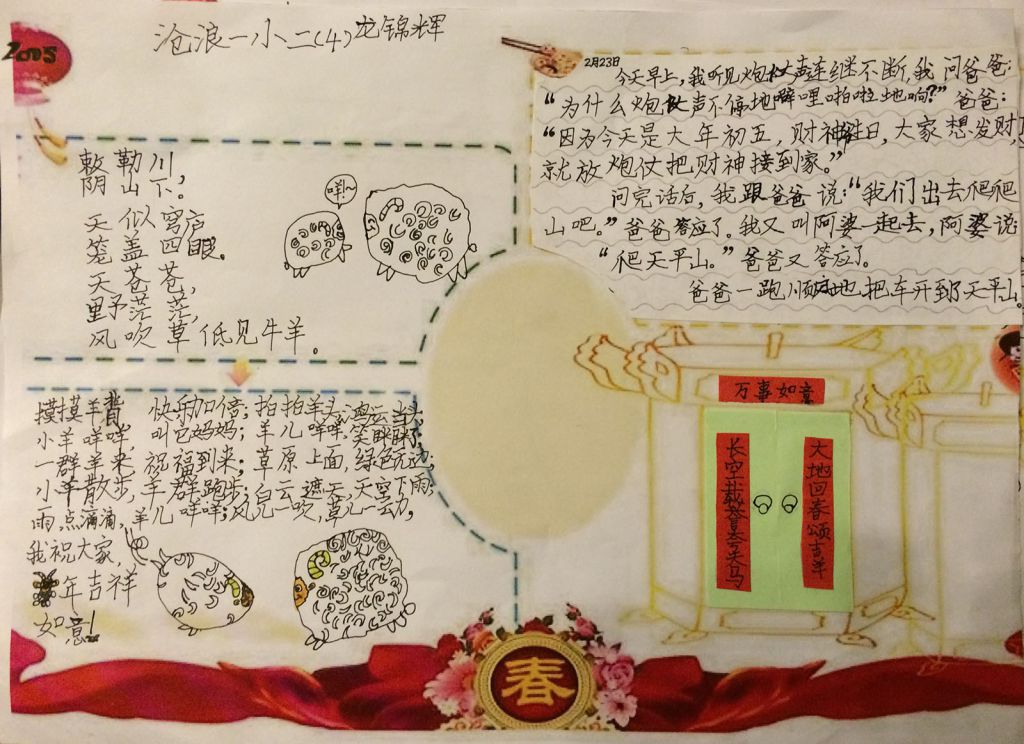 2005
沧浪一小二(4)龙锦辉
2月23日
今天早上,我听见炮仗声连继不断,我问爸爸:
“为什么炮仗声不停地噼哩啪啦地响?”爸爸:
“因为今天是大年初五,财神生日,大家想发财,
就放炮仗把财神接到家。”
问完话后,我跟爸爸说:“我们出去爬爬
山吧。”爸爸答应了。我又叫阿婆一起去,阿婆说:
“爬天平山。”爸爸又答应了。
爸爸一跑顺地把车开到了天平山。
敕勒川
阴山下,
天似穹庐
笼盖四眼。
天苍苍,
野茫茫,
风吹草低见牛羊。
咩~
摸摸羊背,快乐加倍;拍拍羊头,当头
小羊咩咩,叫它妈妈;羊儿咩咩,笑眯眯了,
一群羊来,祝福到来;草原上面,绿色无边,
小羊散步,羊群跑步;白云遮天,天空下雨,
雨点滴滴,羊儿咩咩;风儿一吹,草儿一动,
我祝大家,
年吉祥
如意!
万事如意
长空载誉夸天马
大地回春颂吉羊
春